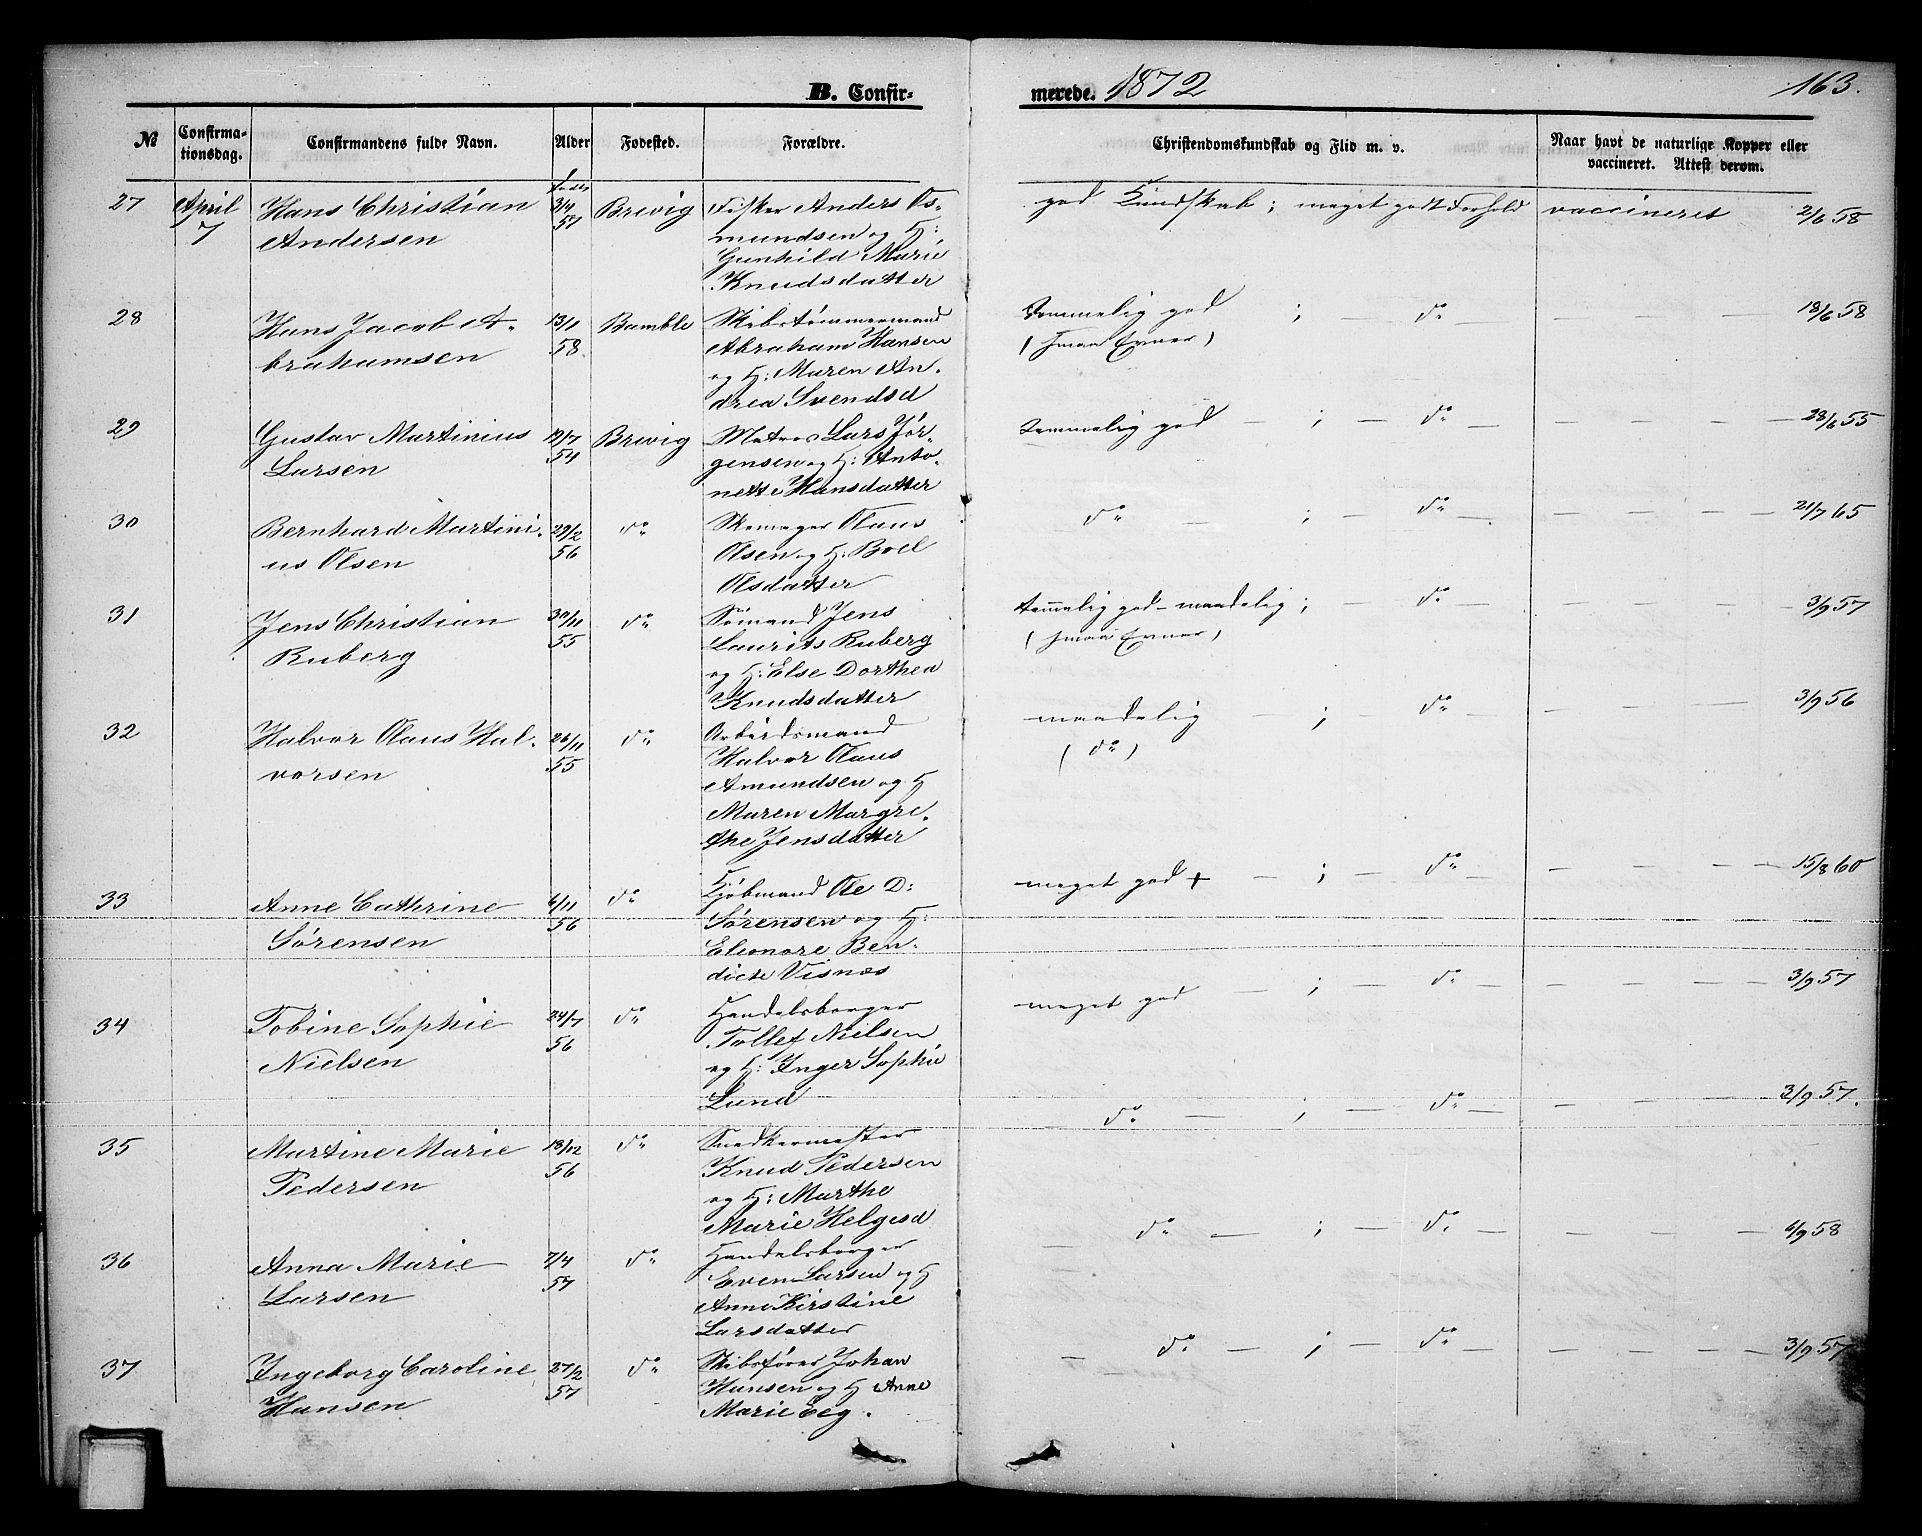 B. Confir-
merede. 1872
163.
№
Confirma-
tionsdag.
Confirmandens fulde Navn.
Alder
Fødested.
Forældre.
Christendomskundskab og Flid m. v.
Naar havt de naturlige Kopper eller
vaccineret. Attest derom.
27 April Hans Christian 3/4 Brevig Fisker Anders Os- god Kundskab; meget godt Forhold vaccineret 2/6 58
7 Andersen 57 mundsen og H:
Gunhild Marie
Knudsdatter
28 Hans Jacob A- 13/1 Bamble Skibstømmermand Temmelig god ; — d° — 18/6 58
brahamsen 58 Abraham Hansen (smaa Evner)
og H: Maren An-
drea Svendsd
29 Gustav Martinius 19/7 Brevig Matros Lars Jør- Temmelig god — ; — d° — 23/6 55
Larsen 54 gensen og H: Anto-
nette Hansdatter
30 Bernhard Martini- 29/2 d° Skomager Olaus d° — ; — d° — 21/7 65
us Olsen 56 Olsen og H: Boel
Olsdatter
31 Jens Christian 30/11 d° Sømand Jens temmelig god – maadelig; — d° — 3/9 57
Ruberg 55 Laurits Ruberg (smaa Evner)
og H: Else Dorthea
Knudsdatter
32 Halvor Olaus Hal- 26/11 d° Arbeidsmand maadelig — ; — d° — 3/9 56
vorsen 55 Halvor Olaus (d°)
Amundsen og H
Maren Margre-
the Jensdatter
33 Anne Cathrine 6/11 d° Kjøbmand Ole D: meget god + — ; — d° — 15/8 60
Sørensen 56 Sørensen og H:
Eleonore Ben-
dicte Visnæs
34 Tobine Sophie 24/7 d° Handelsborger meget god — ; — d° — 3/9 57
Nielsen 56 Tollef Nielsen
og H: Inger Sophie
Lund
35 Martine Marie 18/12 d° Snedkermester d° — ; — d° — 3/9 57.
Pedersen 56 Knud Pedersen
og H: Marthe
Marie Helgesd
36 Anna Marie 7/4 d° Handelsborger — d° — ; — d° — 4/9 58
Larsen 57 Even Larsen og H
Anne Kirstine
Larsdatter
37 Ingeborg Caroline 27/2 d° Skibsfører Johan — d° — ; — d° — 3/9 57
Hansen 57 Hansen og H Anne
Marie Eeg.